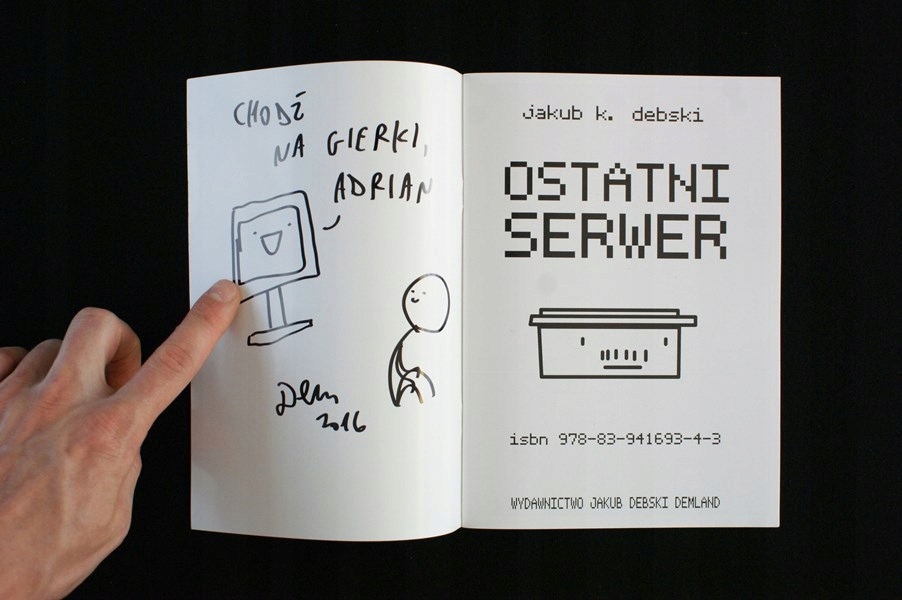 CHODŹ
NA GIERKI,
ADRIAN
Dem
2016
jakub k. debski
OSTATNI
SERWER
isbn 978-83-941693-4-3
WYDAWNICTWO JAKUB DEBSKI DEMLAND